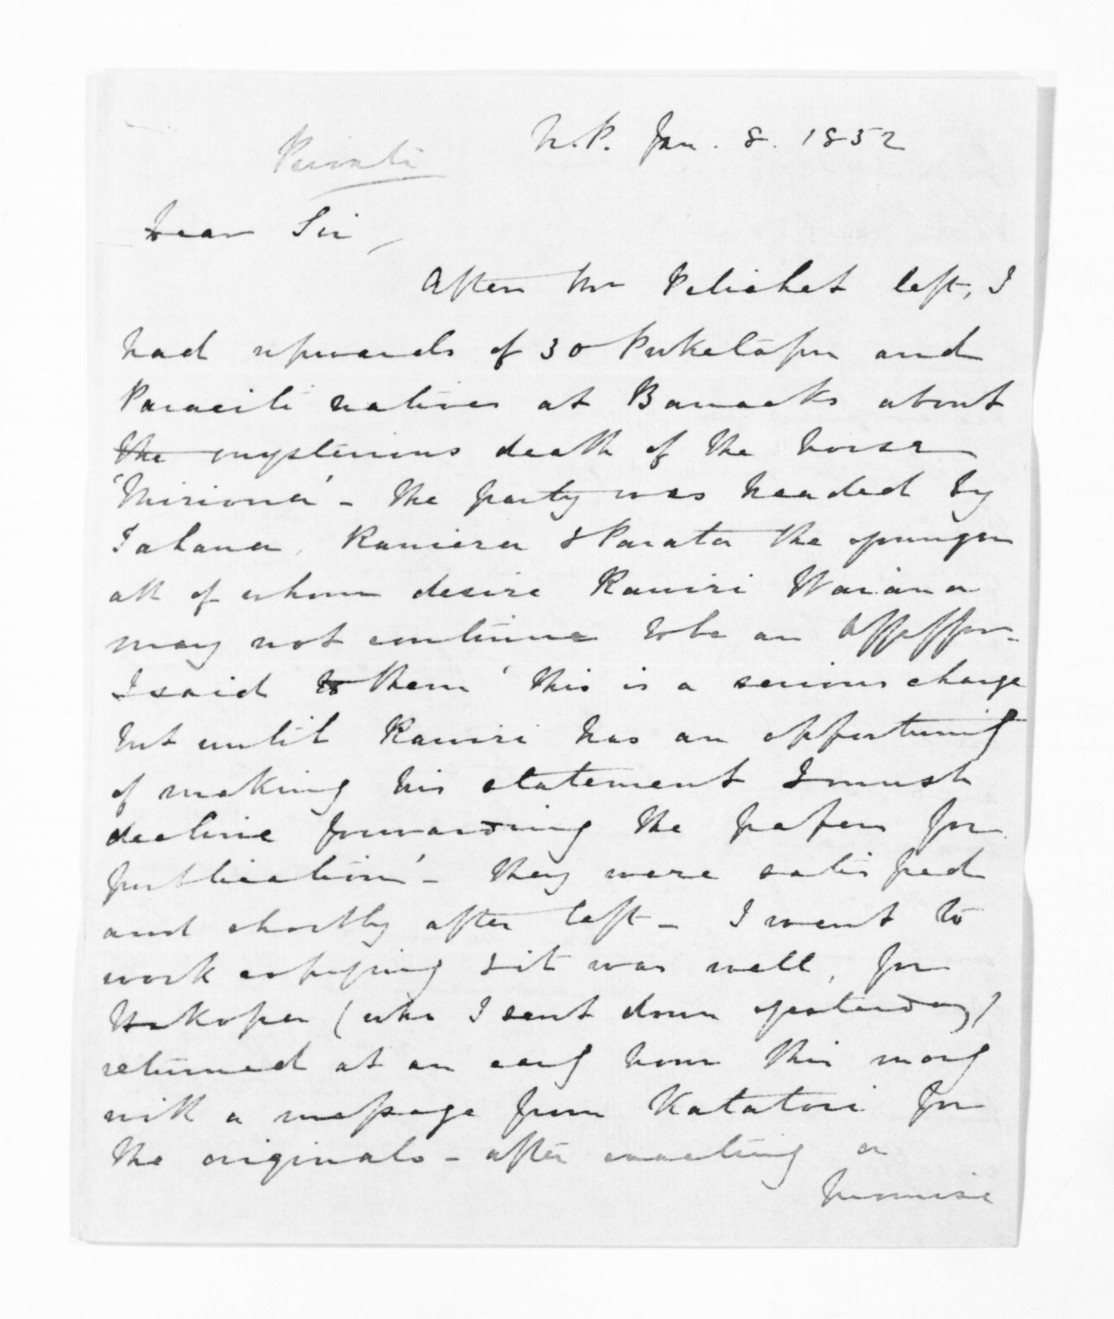 Private
N.P. Jan. 8. 1852
Dear Sir,
After Mr Pelichet left, I
had upwards of 30 Puketapu and
natives at Barracks about
the mysterious death of the horse
- The party was headed by
Tahana, Raniera & Parata the younger
all of whom desire Rawiri Waiaua
may not continue to be an Assessor -
I said to them 'this is a serious charge
but until Rawiri has an opportunity
of making his statement I must
decline forwarding the papers for
publication' - they were satisfied
and shortly after left - I went to
work copying & it was well, for
(who I sent down yesterday)
returned at an early hour this morg
with a message from Katatori for
the originals - after exacting a
promise